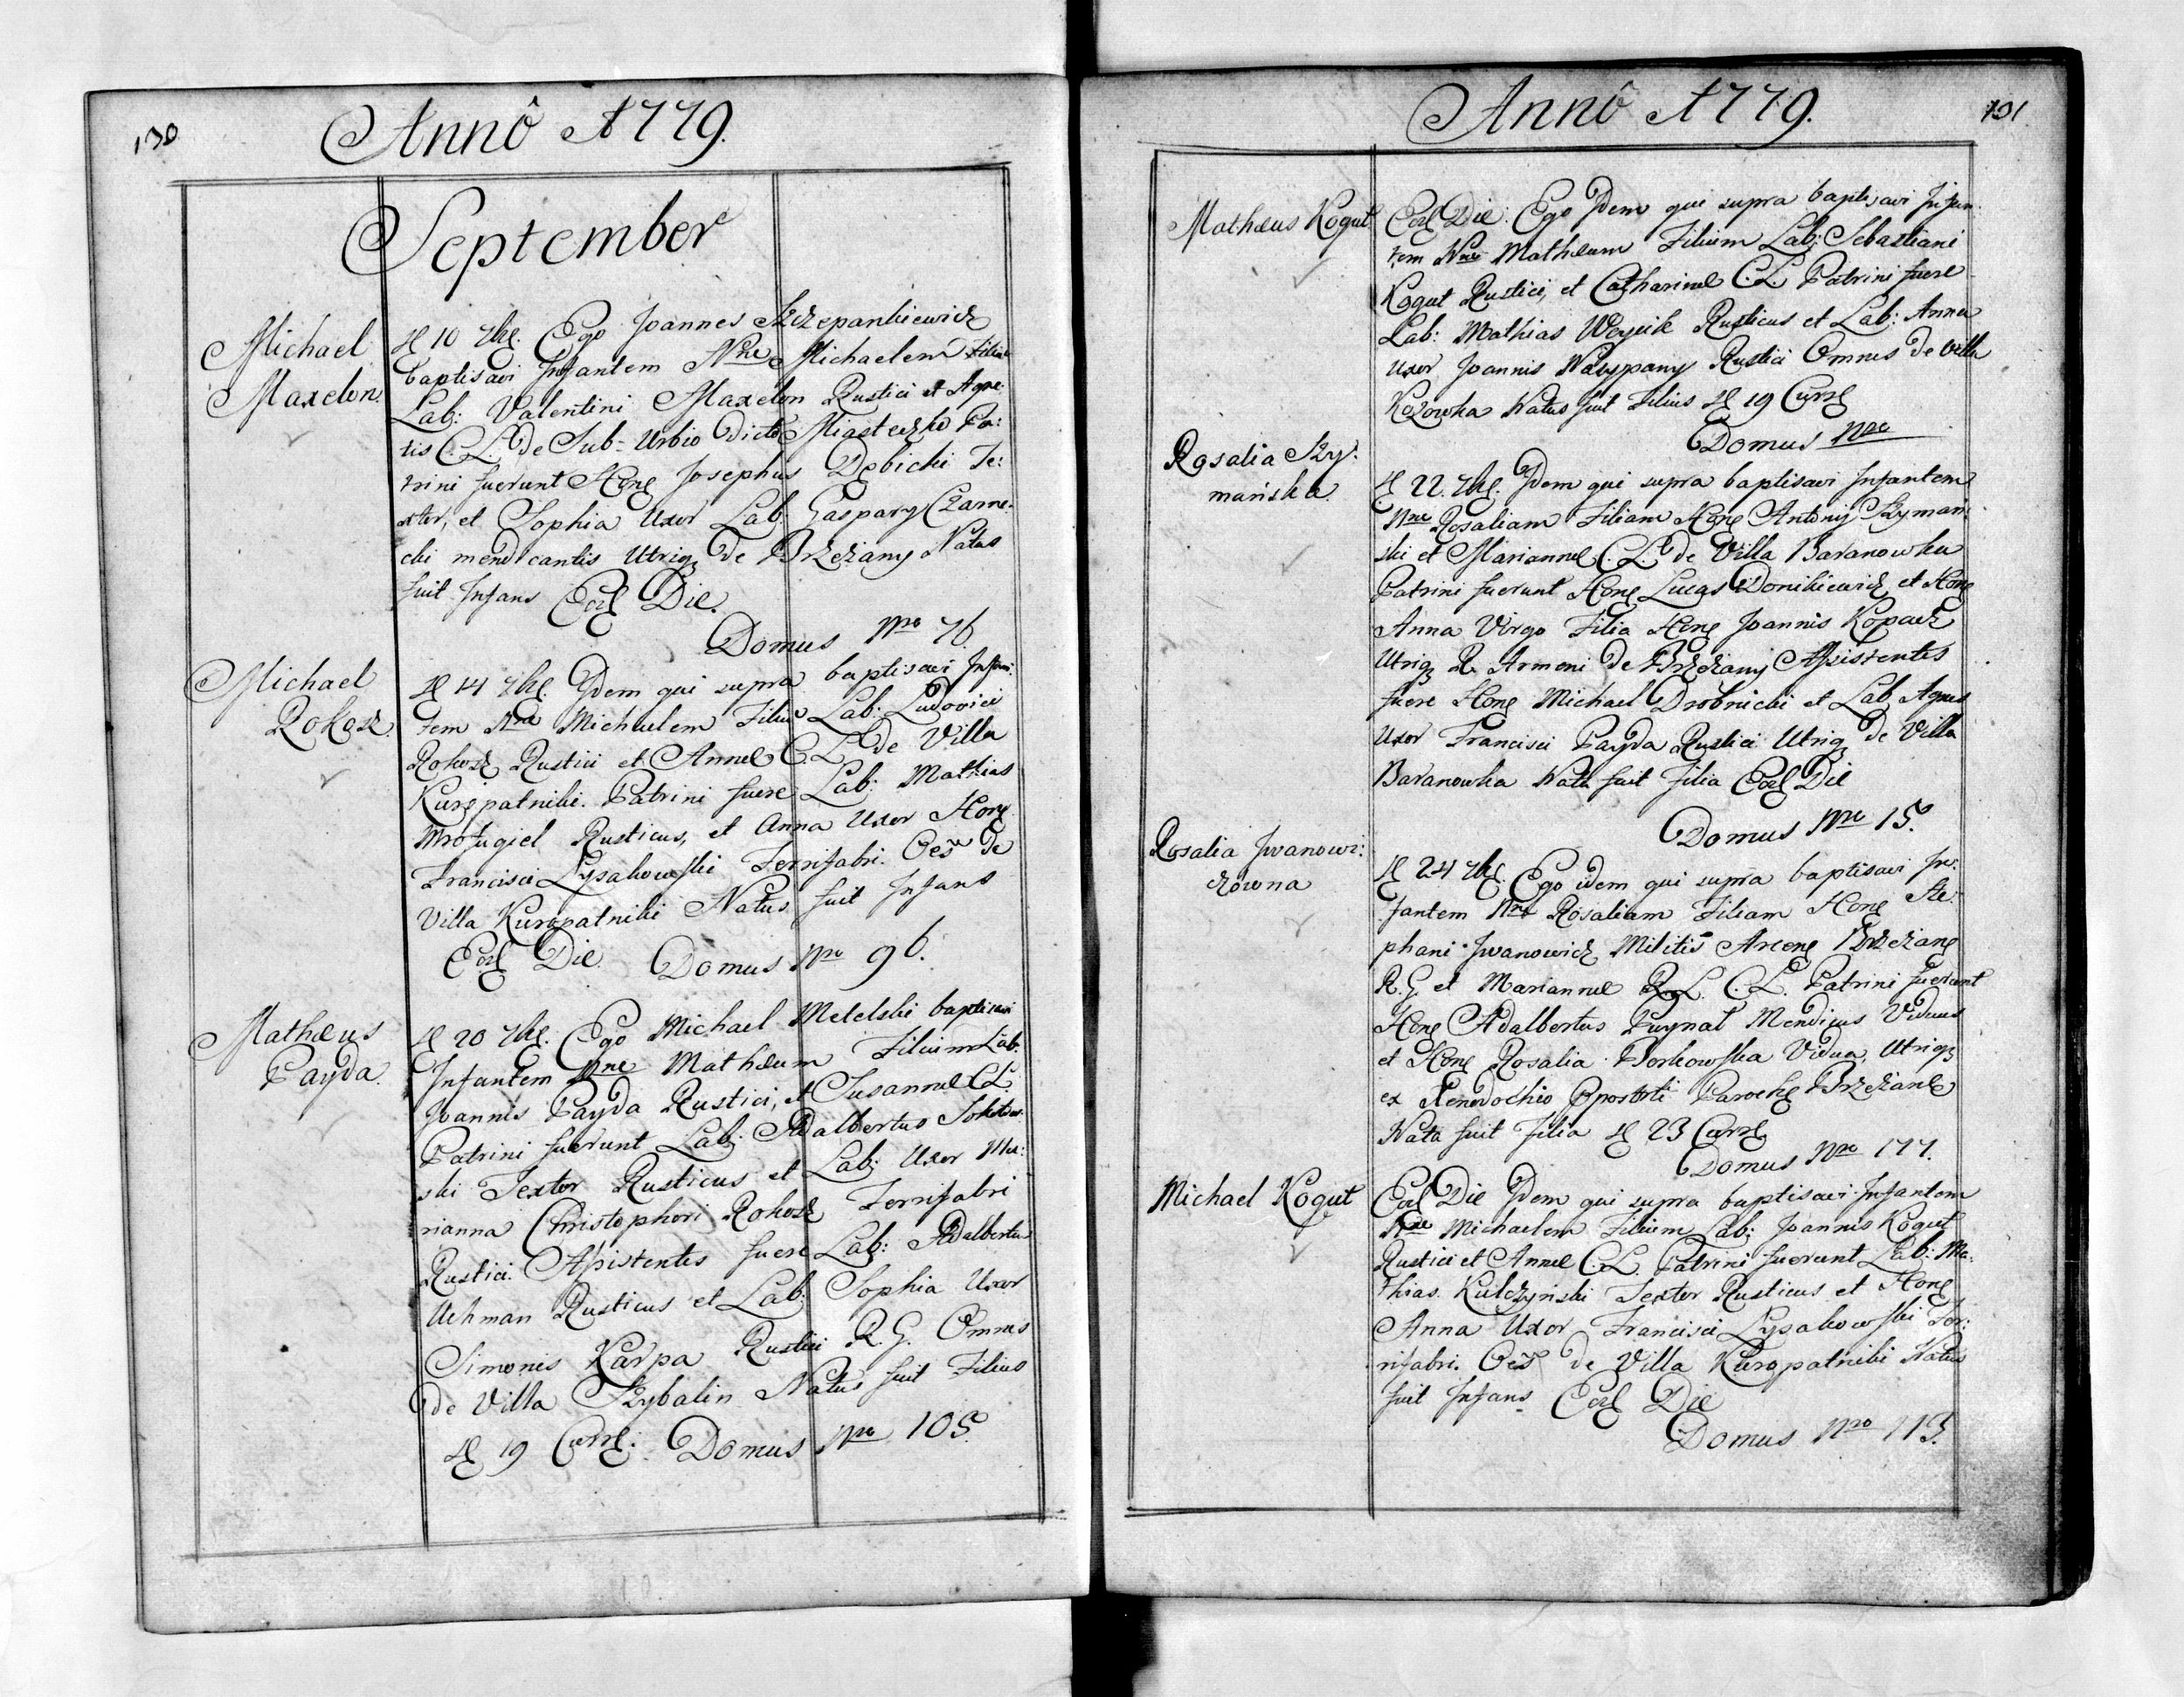 130
Annô 1779.
September
Michael
Maxelon.
D 10 7bris. Ego Joannes Szczepankiewicz
baptisavi Infantem Nne Michaelem Filium
Lab: Valentini Maxelon Rustici et Agne-
tis C.L. de Sub-Urbio dicto Miasteczko Pa:
trini fuerunt Hone Josephus Dębicki Te:
xtor, et Sophia Uxor Lab: Gaspary Czarne-
cki mendicantis Utriq de Brzeżany Natus
fuit Infans Eod Die.
Domus Nro 76.
Michael
Rokosz.
D 14 7bris. Idem qui supra baptisavi Infan:
tem Nne Michaelem Filiū Lab: Ludovici
Rokosz Rustici et Annae C.L. de Villa
Kuropatniki. Patrini fuere Lab: Mathias
Rusticus, et Anna Uxor Hone
Francisci Łysakowski Ferrifabri. Oēs de
Villa Kuropatniki Natus fuit Infans
Eod Die. Domus Nro 96.
Mathæus
Payda.
D 20 7bris. Ego Michael Melelski baptisavi
Infantem Nne Mathæum Filium Lab:
Joannis Payda Rustici, et Susannae C.L.
Patrini fuerunt Lab: Adalbertus
ski Textor Rusticus et Lab: Uxor Ma:
rianna Christophori Rokosz Ferrifabri
Rustici. Assistentes fuere Lab: Adalbertus
Uchman Rusticus et Lab: Sophia Uxor
Simonis Karpa Rustici R.G. Omnes
de Villa Szybalin Natus fuit Filius
D 19 Curr. Domus Nro 105.
Annô 1779.
131
Mathæus Kogut
Eod Die: Ego Idem qui supra baptisavi Infan-
tem Nne Mathæum Filium Lab: Sebastiani
Kogut Rustici, et Catharinae C.L. Patrini fuere
Lab: Mathias Woycik Rusticus et Lab: Anna
Uxor Joannis Nasypany Rustici Omnes de Villa
Kozowka Natus fuit Filius D 19 Curr
Domus Nro
Rosalia Szy:
mańska.
D 22. 7bris. Idem qui supra baptisavi Infantem
Nne Rosaliam Filiam Hone Antonij Szyman:
ski et Mariannae C.L. de Villa Baranowka
Patrini fuerunt Hone Lucas Donikiewicz et Hone
Anna Virgo Filia Hone Joannis Kopacz
Utriq R. Armeni de Brzeżany Assistentes
fuere Hone Michael Drobnicki et Lab Agnes
Uxor Francisci Payda Rustici Utriq de Villa
Baranowka Nata fuit Filia Eod Die
Domus Nro 15.
Rosalia Iwanowi:
czówna
D 24 7bris. Ego idem qui supra baptisavi In:
fantem Nne Rosaliam Filiam Hone Ste:
phani Iwanowicz Militis Arcene Brzeżane
R.G. et Mariannae R.L. C.L. Patrini fuerunt
Hone Adalbertus Puynal Mendicus Viduus
et Hone Rosalia Borkowska Vidua, Utriq
ex Xenodochio Parochę Brzeżanę
Nata fuit Filia D 23 Curr
Domus Nro 177.
Michael Kogut
Eod Die Idem qui supra baptisavi Infantem
Nne Michaelem Filium Lab: Joannis Kogut
Rustici et Annae C.L. Patrini fuerunt Lab: Ma:
thias Kulczyński Textor Rusticus et Hone
Anna Uxor Francisci Łysakowski Fer:
rifabri. Oēs de Villa Kuropatniki Natus
fuit Infans Eod Die
Domus Nro 113.